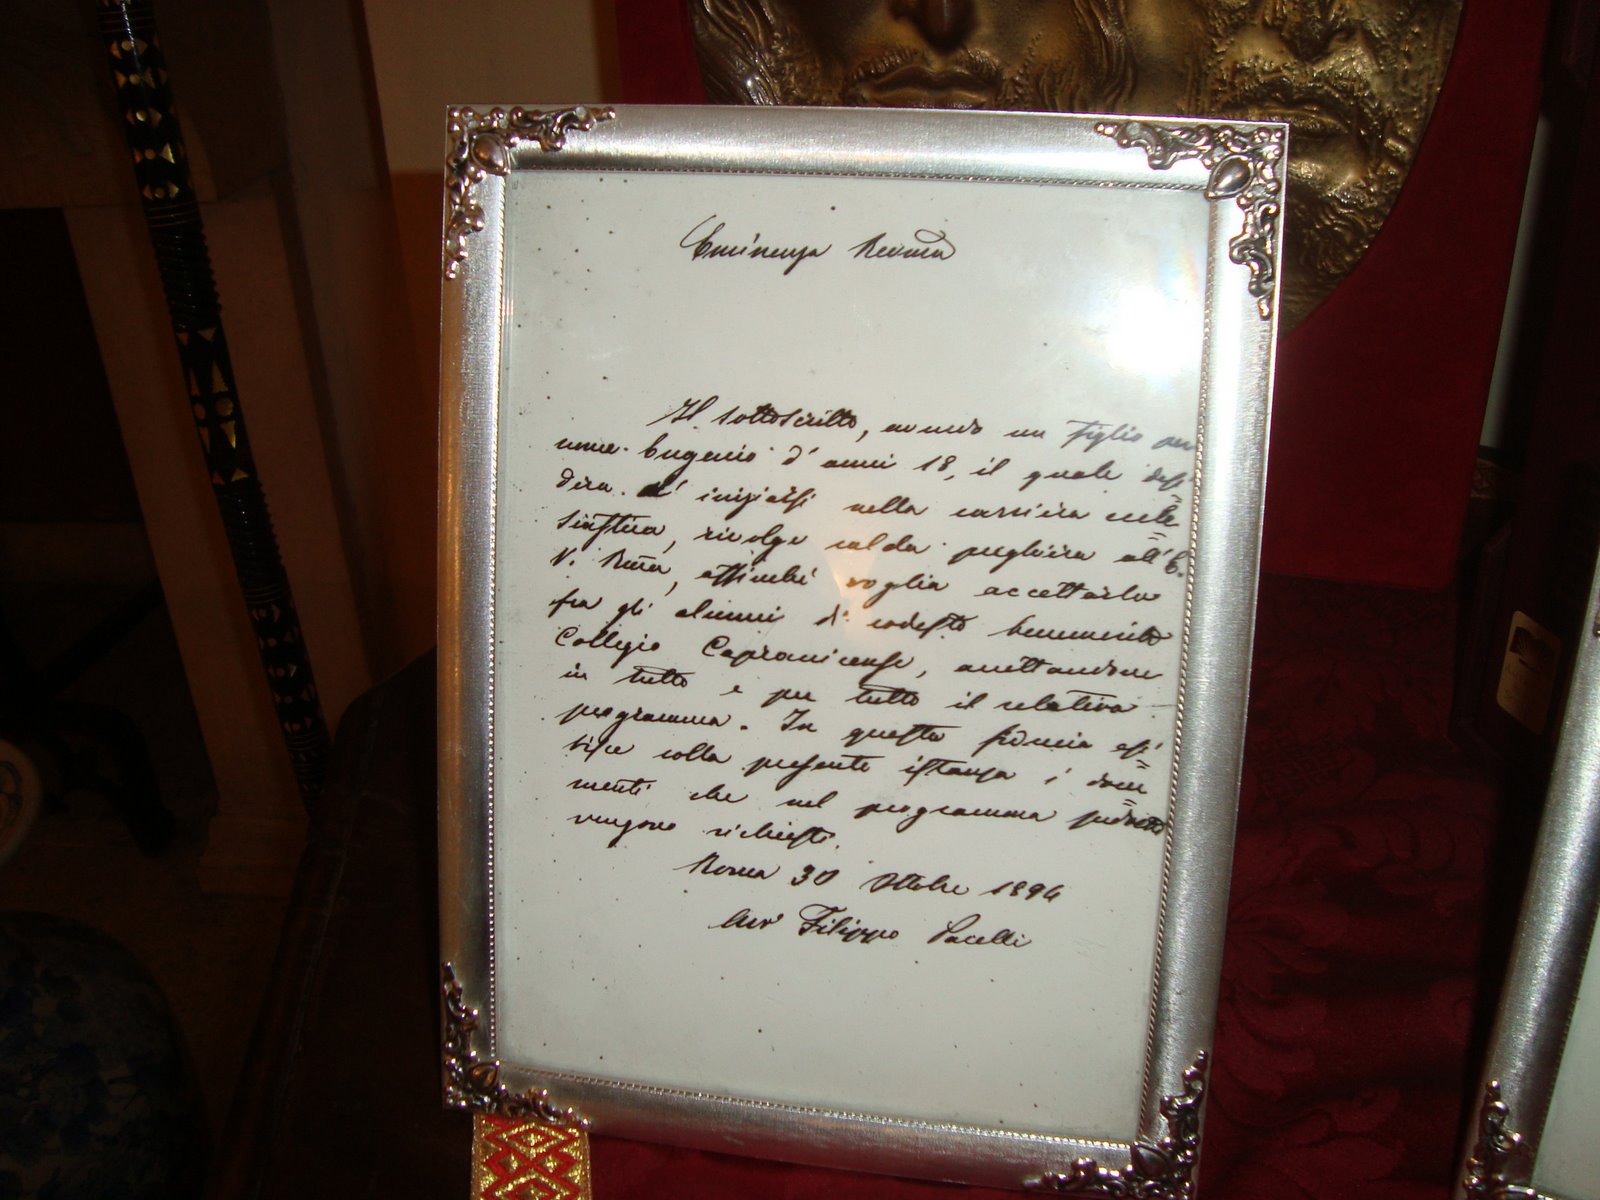 Eminenza Revma
Il sottoscritto, avendo un figlio per
nome Eugenio d'anni 18, il quale desi
dera d'iniziarsi nella carriera eccle=
siastica, rivolge calda preghiera all'E.
V. Rma, affinché voglia accettarlo
fra gli alunni di codesto benemerito
Collegio Capranicense, accettandone
in tutto e per tutto il relativo
programma. In questa fiducia esi=
bisce colla presente istanza i docu=
menti che nel programma predetto
vengono richiesti.
Roma 30 Ottobre 1894
Avv Filippo Pacelli